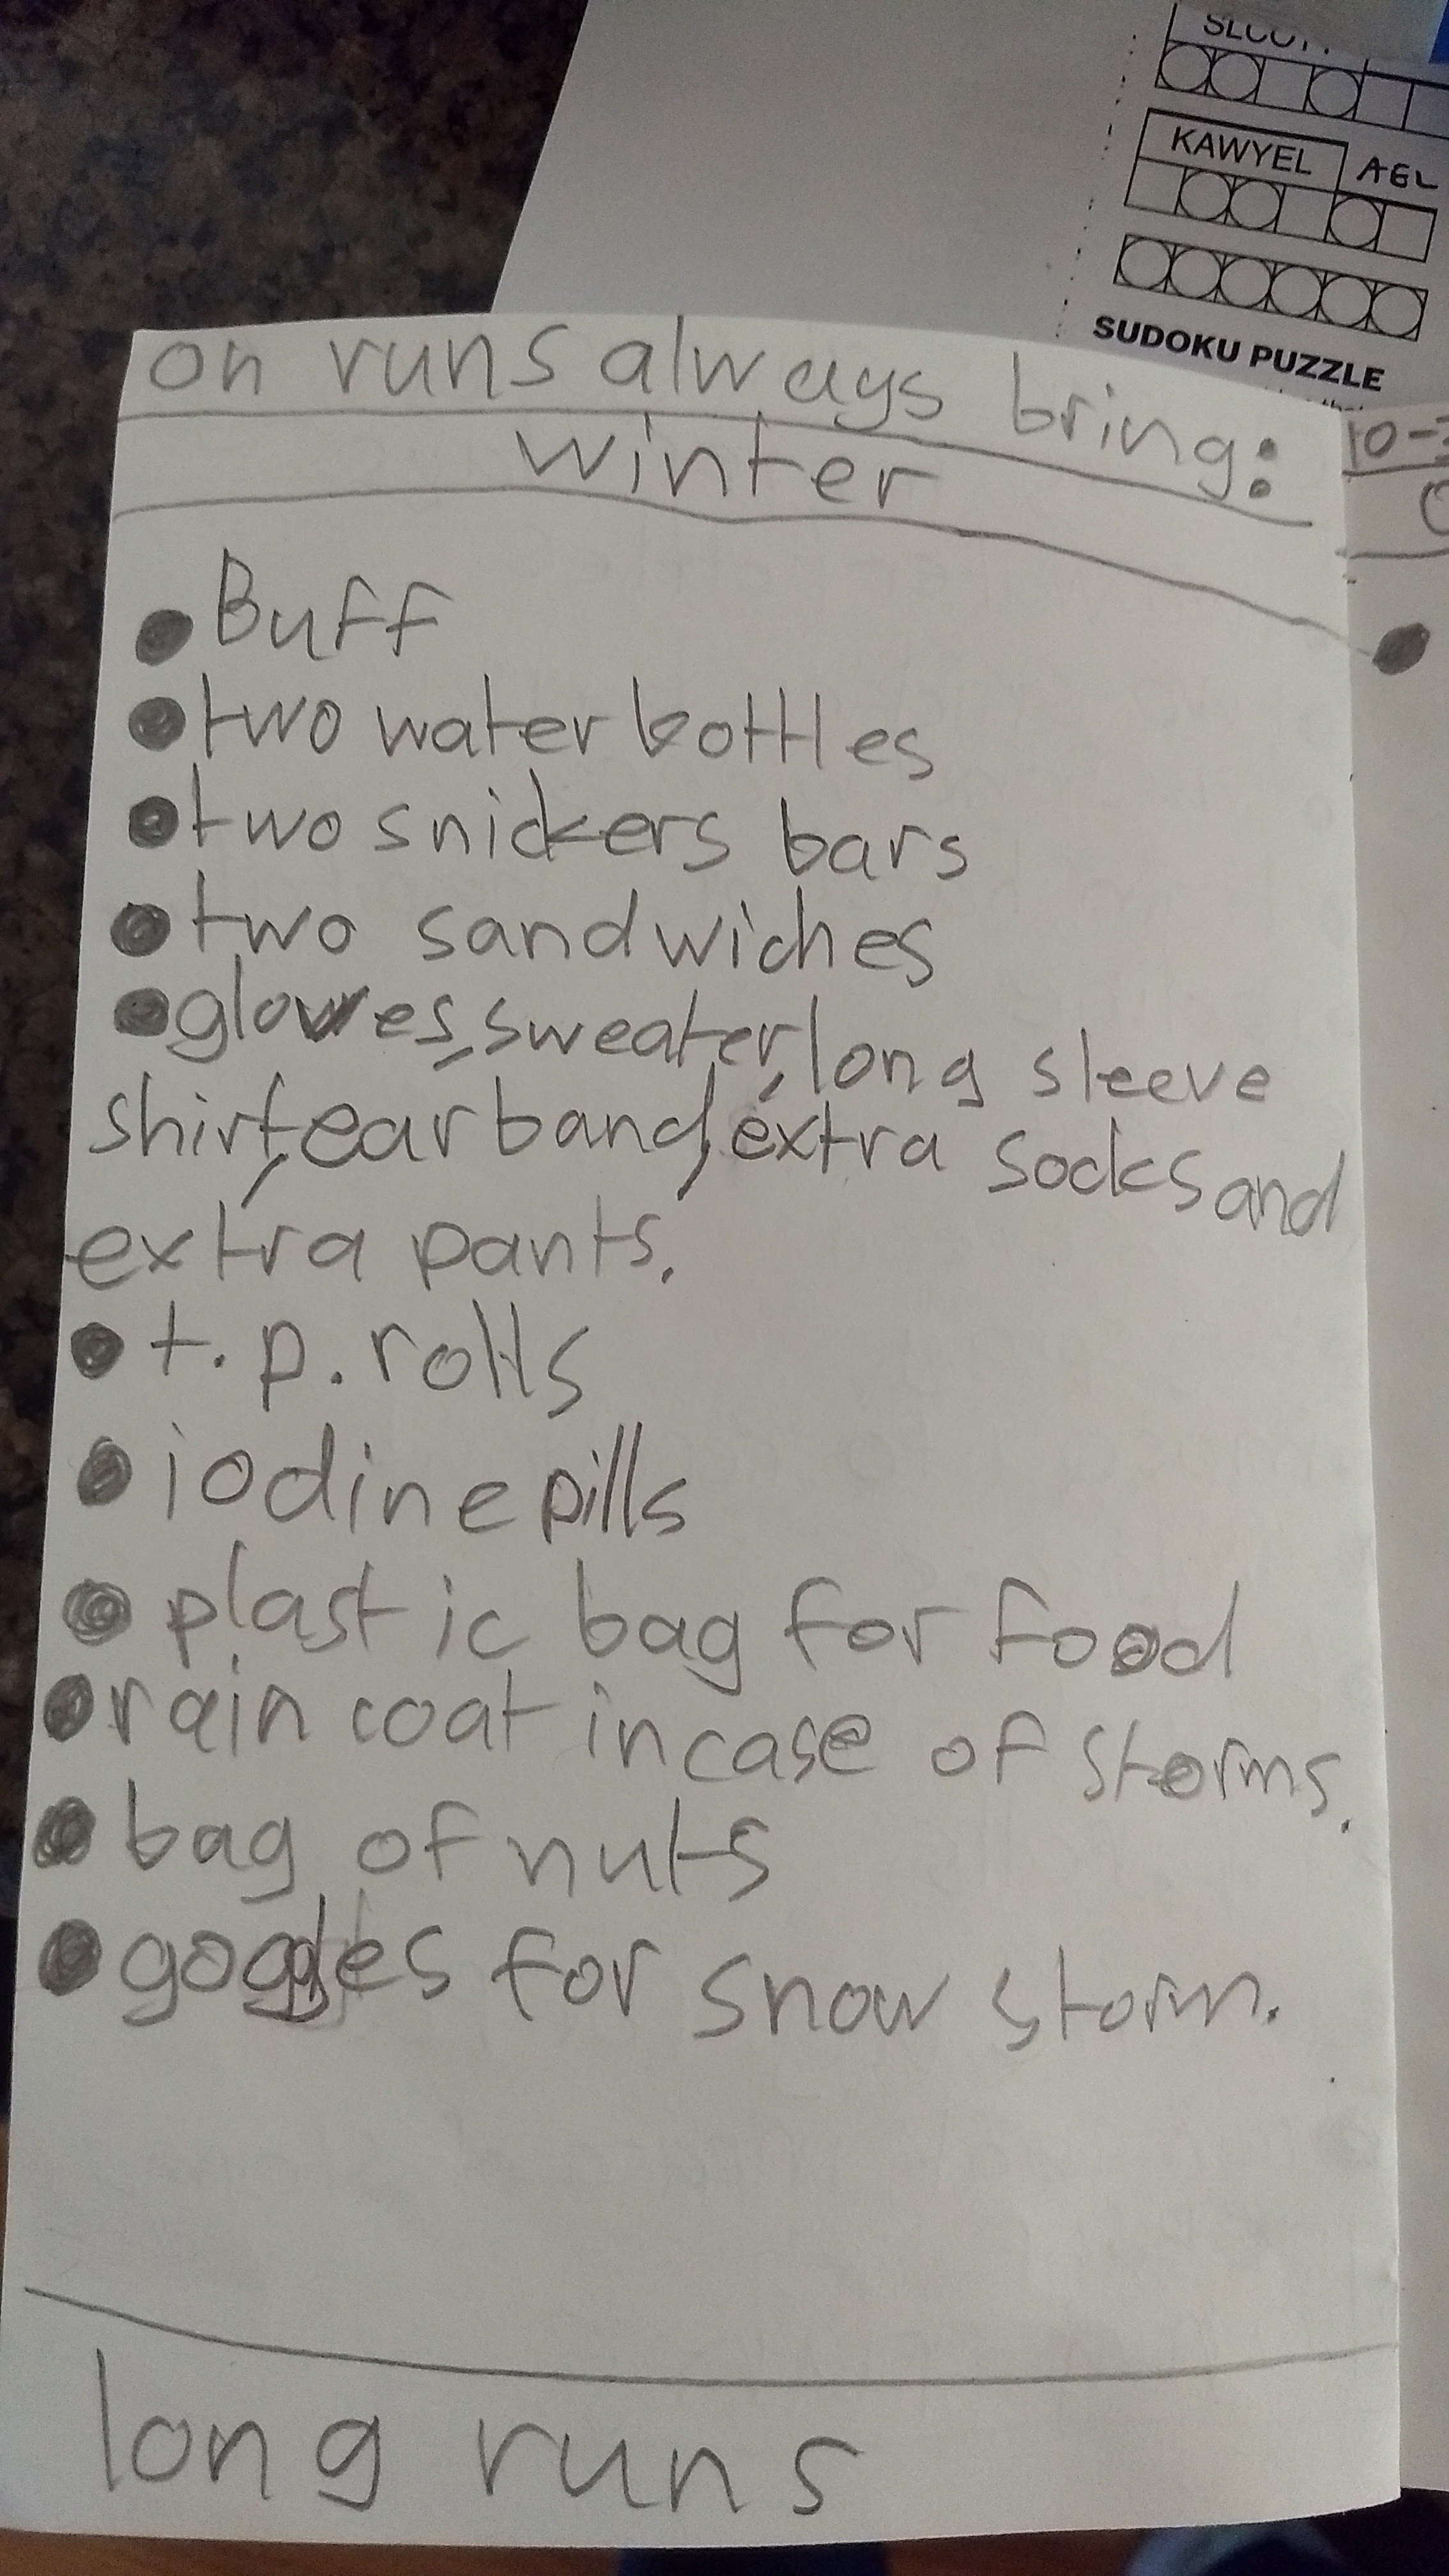 KAWYEL
SUDOKU PUZZLE
on runs always bring:
winter
• Buff
• two water bottles
• two snickers bars
• two sandwiches
• gloves, sweater, long sleeve
shirt, ear band, extra socks and
extra pants.
• t. p. rolls
• iodine pills
• plastic bag for food
• rain coat in case of storms.
• bag of nuts
• goggles for snow storm.
long runs